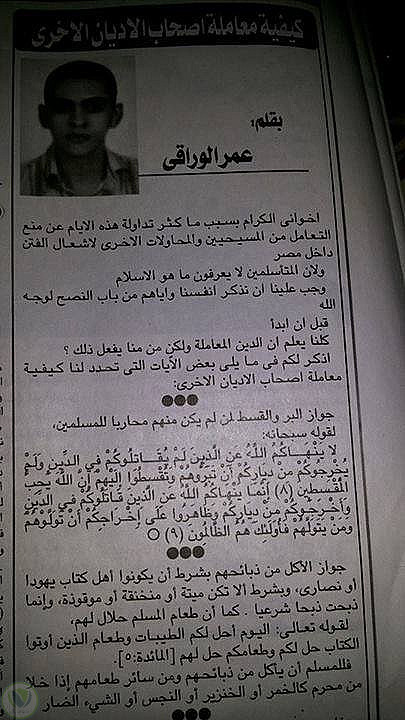 كيفية معاملة اصحاب الاديان الاخرى
بقلم:
عمر الوراقى
اخوانى الكرام بسبب ما كثر تداولة هذه الايام عن منع
التعامل من المسيحيين والمحاولات الاخرى لاشعال الفتن
داخل مصر
ولان المتأسلمين لا يعرفون ما هو الاسلام
وجب علينا ان نذكر انفسنا واياهم من باب النصح لوجه
الله
قبل ان ابدأ
كلنا يعلم ان الدين المعاملة ولكن من منا يفعل ذلك ؟
اذكر لكم فى ما يلى بعض الآيات التى تحدد لنا كيفية
معاملة اصحاب الاديان الاخرى:
جواز البر والقسط لمن لم يكن منهم محاربا للمسلمين،
لقوله سبحانه:
لَا يَنْهَاكُمُ اللَّهُ عَنِ الَّذِينَ لَمْ يُقَاتِلُوكُمْ فِي الدِّينِ وَلَمْ
يُخْرِجُوكُمْ مِنْ دِيَارِكُمْ أَنْ تَبَرُّوهُمْ وَتُقْسِطُوا إِلَيْهِمْ إِنَّ اللَّهَ يُحِبُّ
الْمُقْسِطِينَ (٨) إِنَّمَا يَنْهَاكُمُ اللَّهُ عَنِ الَّذِينَ قَاتَلُوكُمْ فِي الدِّينِ
وَأَخْرَجُوكُمْ مِنْ دِيَارِكُمْ وَظَاهَرُوا عَلَى إِخْرَاجِكُمْ أَنْ تَوَلَّوْهُمْ
وَمَنْ يَتَوَلَّهُمْ فَأُولَئِكَ هُمُ الظَّالِمُونَ (٩)
جواز الأكل من ذبائحهم بشرط أن يكونوا أهل كتاب يهودا
أو نصارى، وبشرط الا تكن ميتة أو منخنقة او موقوذة، وإنما
ذبحت ذبحا شرعيا . كما أن طعام المسلم حلال لهم،
لقوله تعالى: اليوم أحل لكم الطيبات وطعام الذين أوتوا
الكتاب حل لكم وطعامكم حل لهم [المائدة:٥].
فللمسلم أن يأكل من ذبائحهم ومن سائر طعامهم إذا خلا
من محرم كالخمر أو الخنزير أو النجس أو الشيء الضار